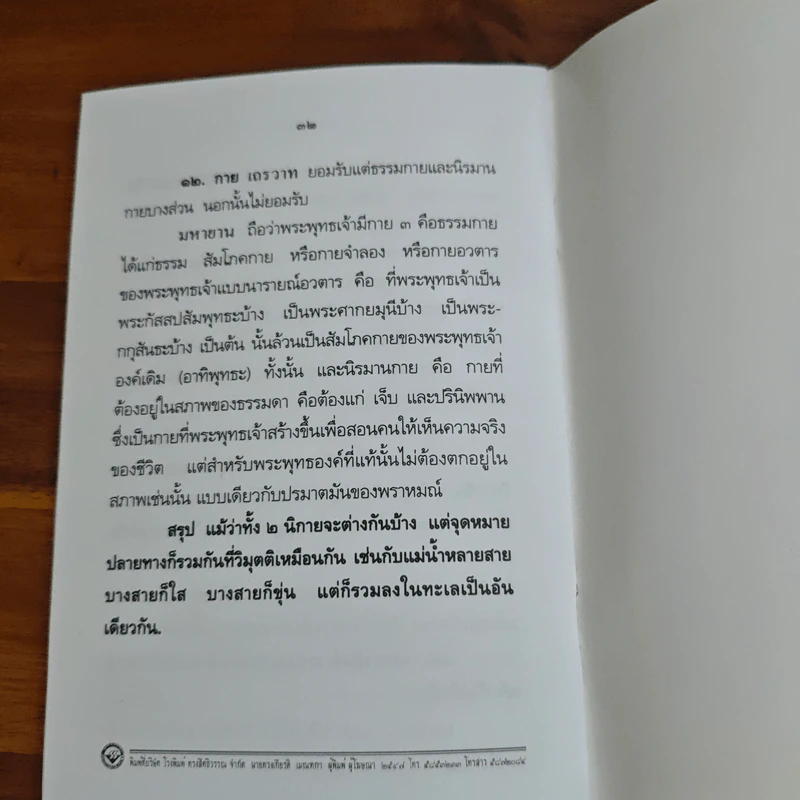 ๓๒
๑๒. กาย เถรวาท ยอมรับแต่ธรรมกายและนิรมาน
กายบางส่วน นอกนั้นไม่ยอมรับ
มหายาน ถือว่าพระพุทธเจ้ามีกาย ๓ คือธรรมกาย
ได้แก่ธรรม สัมโภคกาย หรือกายจำลอง หรือกายอวตาร
ของพระพุทธเจ้าแบบนารายณ์อวตาร คือ ที่พระพุทธเจ้าเป็น
พระกัสสปสัมพุทธะบ้าง เป็นพระศากยมุนีบ้าง เป็นพระ-
กกุสันธะบ้าง เป็นต้น นั้นล้วนเป็นสัมโภคกายของพระพุทธเจ้า
องค์เดิม (อาทิพุทธะ) ทั้งนั้น และนิรมานกาย คือ กายที่
ต้องอยู่ในสภาพของธรรมดา คือต้องแก่ เจ็บ และปรินิพพาน
ซึ่งเป็นกายที่พระพุทธเจ้าสร้างขึ้นเพื่อสอนคนให้เห็นความจริง
ของชีวิต แต่สำหรับพระพุทธองค์ที่แท้นั้นไม่ต้องตกอยู่ใน
สภาพเช่นนั้น แบบเดียวกับปรมาตมันของพราหมณ์
สรุป แม้ว่าทั้ง ๒ นิกายจะต่างกันบ้าง แต่จุดหมาย
ปลายทางก็รวมกันที่วิมุตติเหมือนกัน เช่นกับแม่น้ำหลายสาย
บางสายก็ใส บางสายก็ขุ่น แต่ก็รวมลงในทะเลเป็นอัน
เดียวกัน.
พิมพ์ที่บริษัท โรงพิมพ์ ทรงสิทธิวรรณ จำกัด นายทรงเกียรติ เมณฑกา ผู้พิมพ์ ผู้โฆษณา ๒๕๔๗ โทร ๕๘๕๓๒๓๓ โทรสาร ๕๘๗๒๐๘๔